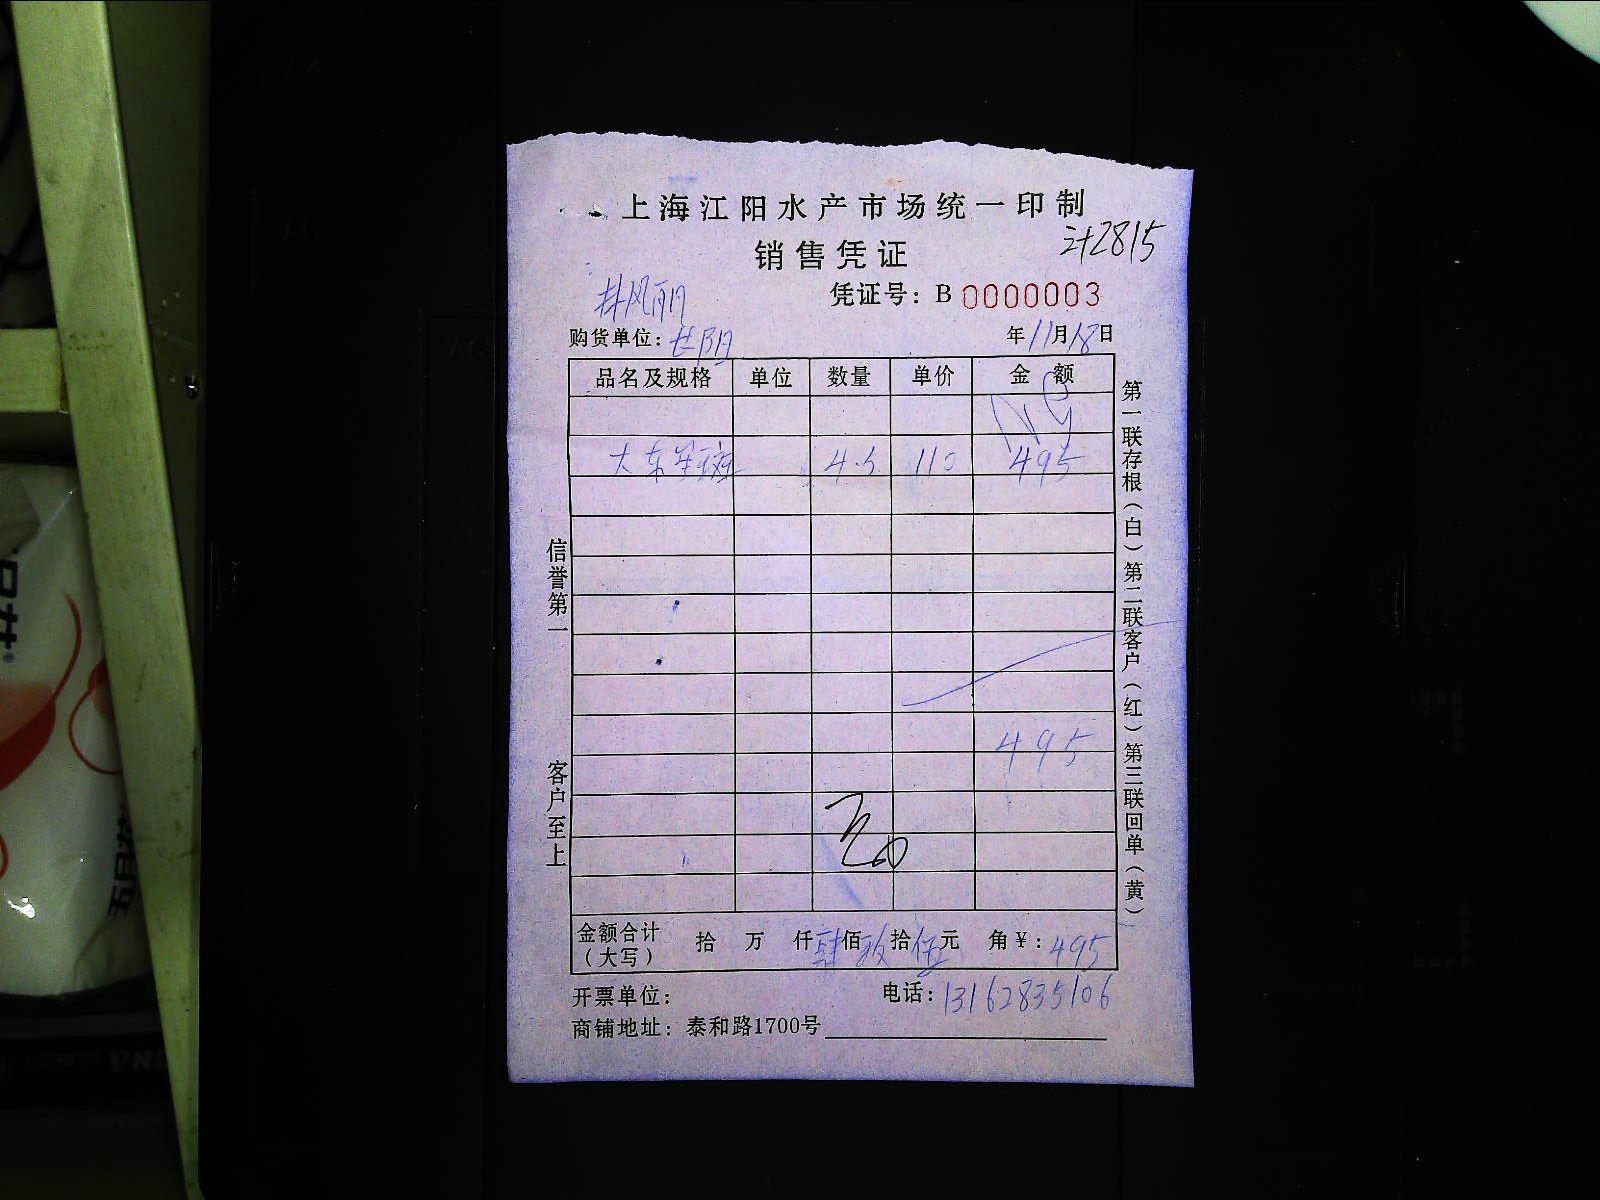 上海江阳水产市场统一印制
计2815
销售凭证
凭证号：B 0000003
购货单位：
年11月18日
品名及规格 单位 数量 单价 金额
大东星斑 4.5 110 495
495
金额合计（大写） 拾 万 仟肆佰玖拾伍元 角￥：495
开票单位：
电话：13162835106
商铺地址：泰和路1700号
信誉第一
客户至上
第一联存根（白）第二联客户（红）第三联回单（黄）